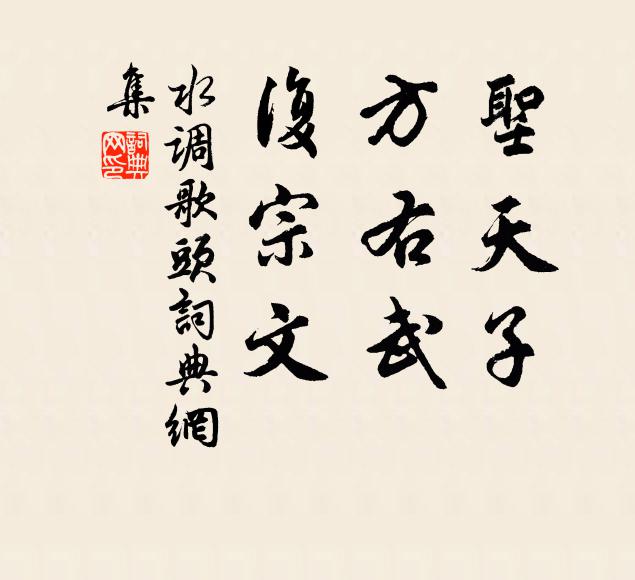 聖天子
方右武
復宗文
水调歌頭詞典網
集
詞典
网印